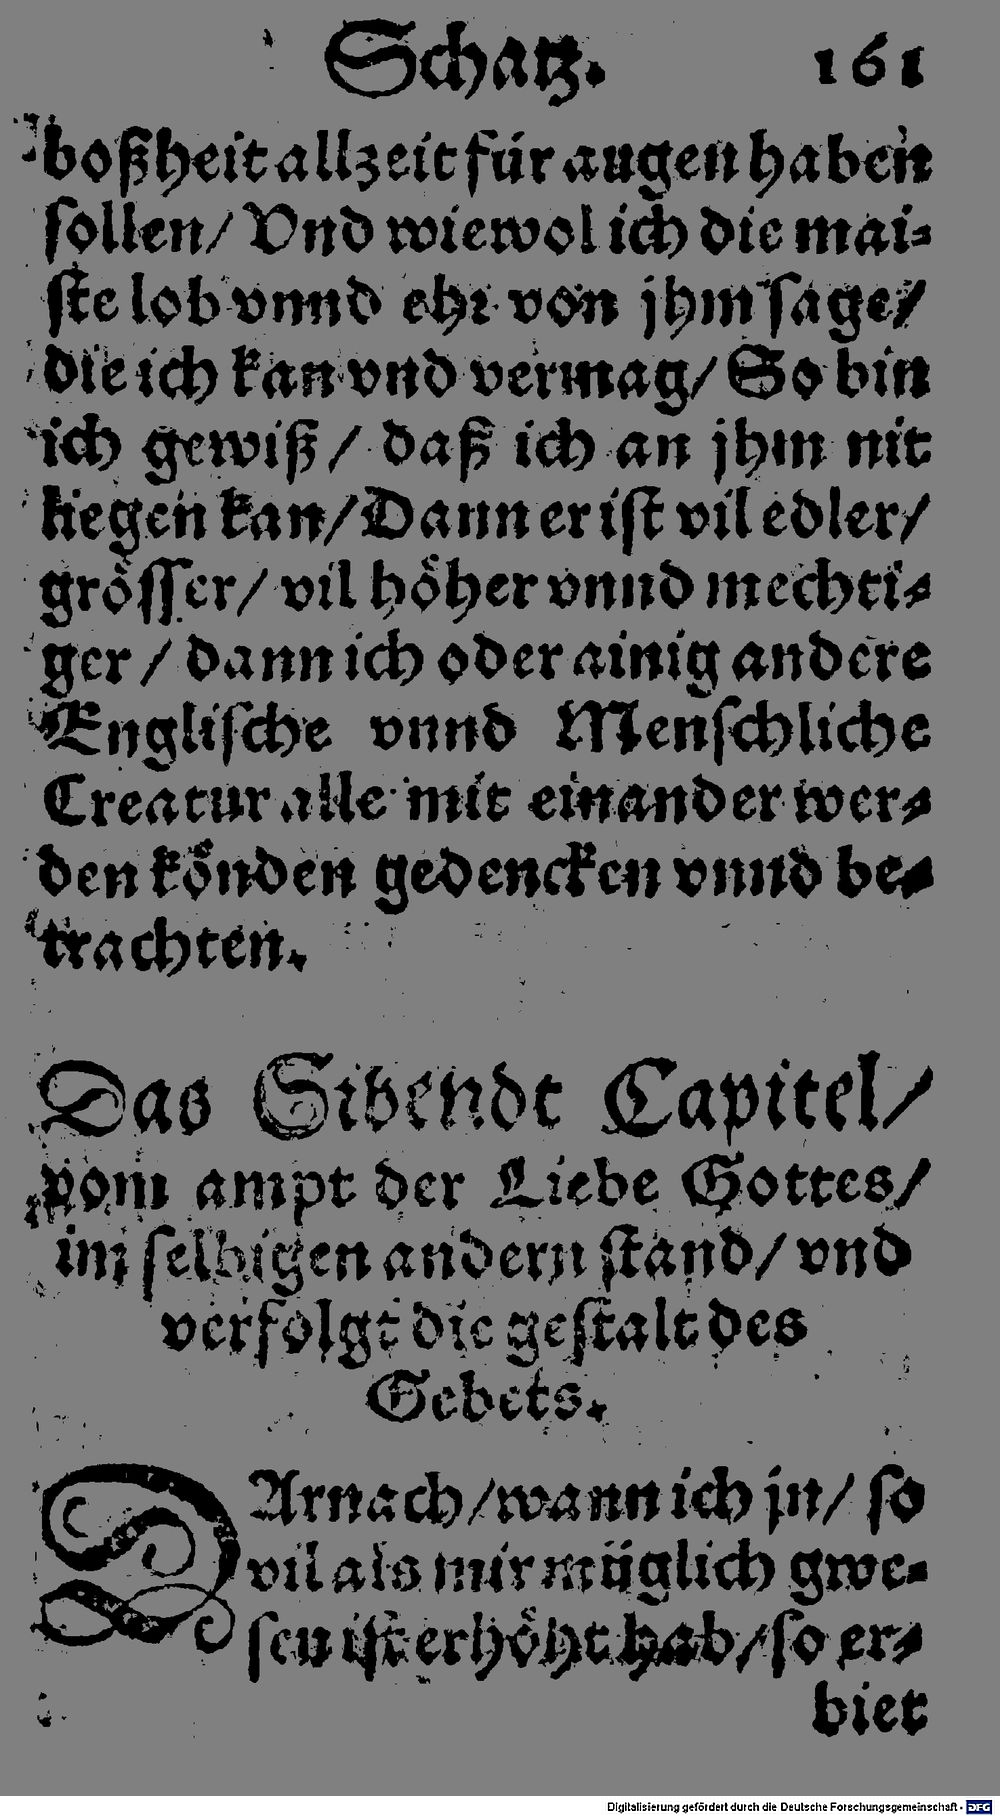 Schatz. 161
boßheit allzeit für augen haben
sollen/ Vnd wiewol ich die mai⸗
ste lob vnnd ehr von jhm sage/
die ich kan vnd vermag/ So bin
ich gewiß/ daß ich an jhm nit
liegen kan/ Dann er ist vil edler/
groͤsser/ vil hoͤher vnnd mechti⸗
ger/ dann ich oder ainig andere
Englische vnnd Menschliche
Creatur alle mit einander wer⸗
den koͤnden gedencken vnnd be⸗
trachten.
Das Sibendt Capitel/
vom ampt der Liebe Gottes/
im selbigen andern stand/ vnd
verfolgt die gestalt des
Gebets.
DArnach/ wann ich jn/ so
vil als mir müglich gwe⸗
sen ist erhoͤht hab/ so er⸗
biet
Digitalisierung gefördert durch die Deutsche Forschungsgemeinschaft - DFG